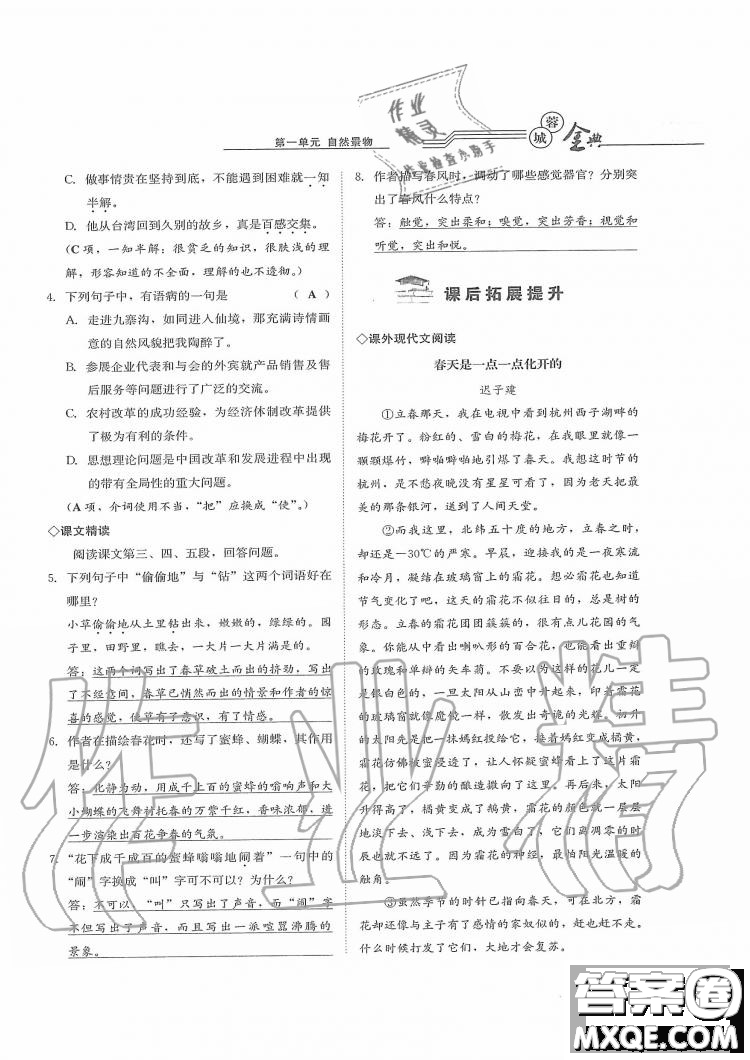 第一单元 自然景物
蓉城金典
作业精灵
C. 做事情贵在坚持到底，不能遇到困难就一知
半解。
D. 他从台湾回到久别的故乡，真是百感交集。
(C 项，一知半解：很贫乏的知识，很肤浅的理
解，形容知道的不全面，理解的也不透彻。)
4. 下列句子中，有语病的一句是 （ A ）
A. 走进九寨沟，如同进入仙境，那充满诗情画
意的自然风貌把我陶醉了。
B. 参展企业代表和与会的外宾就产品销售及售
后服务等问题进行了广泛的交流。
C. 农村改革的成功经验，为经济体制改革提供
了极为有利的条件。
D. 思想理论问题是中国改革和发展进程中出现
的带有全局性的重大问题。
(A 项，介词使用不当，“把”应换成“使”。)
◇课文精读
阅读课文第三、四、五段，回答问题。
5. 下列句子中“偷偷地”与“钻”这两个词语好在
哪里？
小草偷偷地从土里钻出来，嫩嫩的，绿绿的。园
子里，田野里，瞧去，一大片一大片满是的。
答：这两个词写出了春草破土而出的挤劲，写出
了不经意间，春草已悄然而出的情景和作者的惊
喜的感觉，使草有了意识，有了情感。
6. 作者在描绘春花时，还写了蜜蜂、蝴蝶，其作用
是什么？
答：化静为动，用成千上百的蜜蜂的嗡响声和大
小蝴蝶的飞舞衬托春的万紫千红，香味浓郁，进
一步渲染出百花争春的气氛。
7. “花下成千成百的蜜蜂嗡嗡地闹着”一句中的
“闹”字换成“叫”字可不可以？为什么？
答：不可以，“叫”只写出了声音，而“闹”字
不但写出了声音，而且写出一派喧嚣沸腾的
景象。
8. 作者描写春风时，调动了哪些感觉器官？分别突
出了春风什么特点？
答：触觉，突出柔和；嗅觉，突出芳香；视觉和
听觉，突出和悦。
课后拓展提升
◇课外现代文阅读
春天是一点一点化开的
迟子建
①立春那天，我在电视中看到杭州西子湖畔的
梅花开了。粉红的、雪白的梅花，在我眼里就像一
颗颗爆竹，噼噼啪啪地引爆了春天。我想这时节的
杭州，是不愁夜晚没有星星可看了，因为老天把最
美的那条银河，送到了人间天堂。
②而我这里，北纬五十度的地方，立春之时，
却还是－30℃的严寒。早晨，迎接我的是一夜寒流
和冷月，凝结在玻璃窗上的霜花。想必霜花也知道
节气变化了吧，这天的霜花不似往日的，总是树的
形态。立春的霜花团团簇簇的，很有点儿花园的气
象。你能从中看出喇叭形的百合花，也能看出重瓣
的玫瑰和单瓣的矢车菊。不要以为这样的花儿一定
是银白色的，一旦太阳从山峦中升起来，印着霜花
的玻璃窗就像魔镜一样，散发出奇诡的光辉。初升
的太阳先是把一抹嫣红投给它，接着嫣红变成橘黄，
霜花仿佛被蜜浸透了，让人怀疑蜜蜂看上了这片霜
花，把它们辛勤的酿造撒向了这里。再后来，太阳
升得高了，橘黄变成了鹅黄，霜花的颜色就一层层
地淡下去、浅下去，成为雪白了，它们离凋零的时
辰也就不远了。因为霜花的神经，最怕阳光温暖的
触角。
③虽然季节的时针已指向春天，可在北方，霜
花却还像与主子有了感情的家奴似的，赶也赶不走。
什么时候打发了它们，大地才会复苏。
作业精
答案圈
MXQE.COM